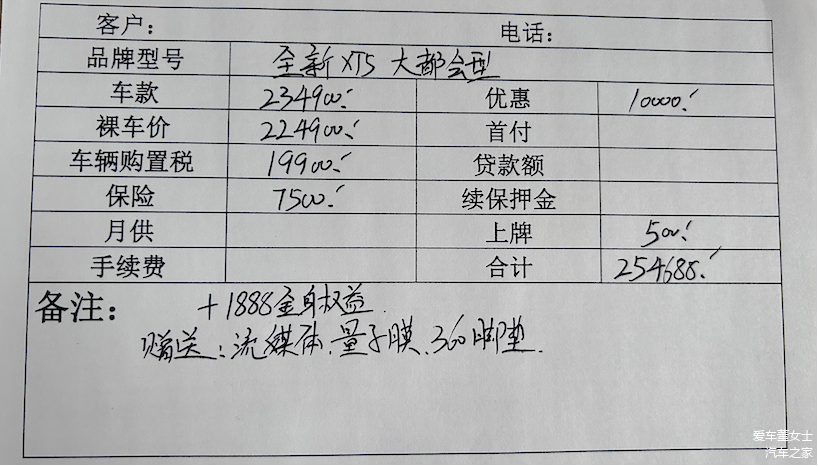 客户： 电话：
品牌型号 全新XT5 大都会型
车款 234900.- 优惠 10000.-
裸车价 224900.- 首付
车辆购置税 19900.- 贷款额
保险 7500.- 续保押金
月供 上牌 500.-
手续费 合计 254688.-
备注： +1888金身权益.
赠送：流媒体、量子膜、360脚垫.
爱车董女士
汽车之家